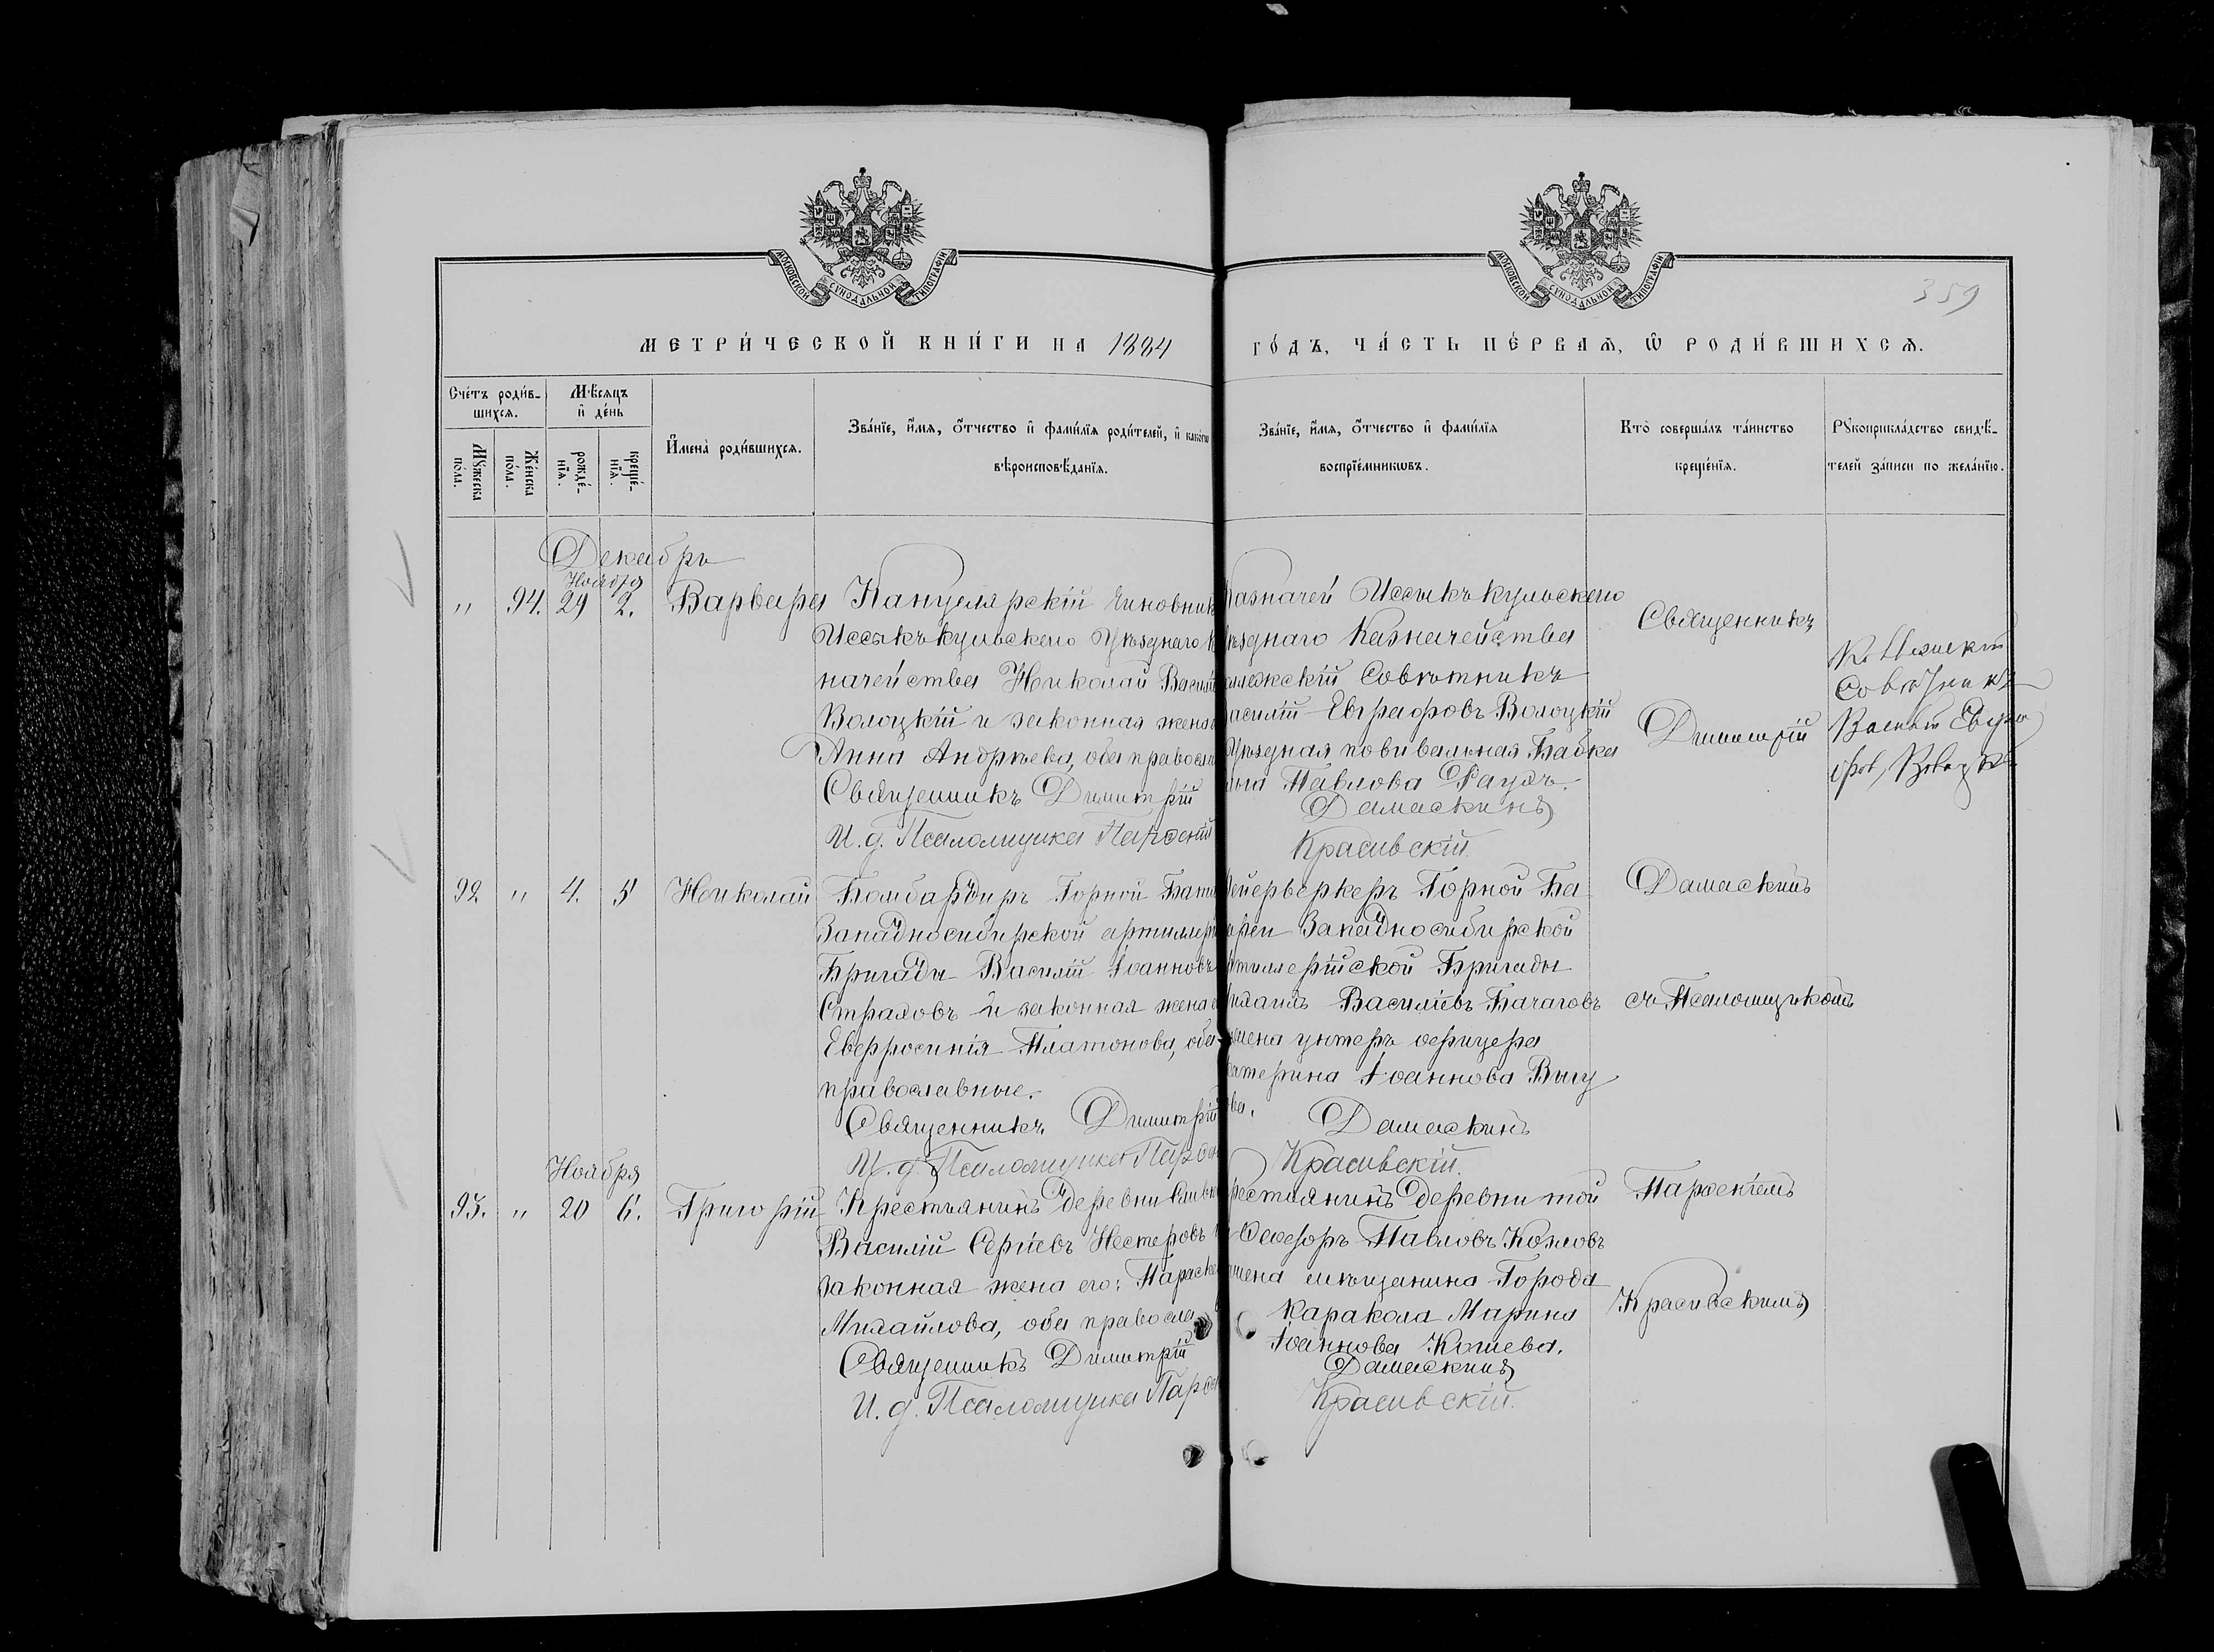 МОСКОВСКОЙ СѴНОДАЛЬНОЙ ТИПОГРАФІИ
МОСКОВСКОЙ СѴНОДАЛЬНОЙ ТИПОГРАФІИ
359
МЕТРИ́ЧЕСКОЙ КНИ́ГИ НА 1884
ГО́ДЪ, ЧА́СТЬ ПЕ́РВАѦ, Ѿ РОДИ́ВШИХСѦ.
Сче́тъ роди́в-
шихся.
Мѣ́сяцъ
и де́нь
Му́жеска
пола.
Же́нска
по́ла.
рожде́-
нїя.
креще́-
нїя.
И҆мена̀ роди́вшихся.
Зва́нїе, и҆́мя, о҆́тчество и҆ фами́лїя роди́телей, и҆ како́гѡ
вѣроисповѣ́данїя.
Зва́нїе, и҆́мя, о҆́тчество и҆ фами́лїя
воспрїе́мникѡвъ.
Кто̀ соверша́лъ та́инство
креще́нїя.
Рукоприкла́дство свидѣ́-
телей за́писи по жела́нїю.
Декабрь
Ноября
" 94. 29 2. Варвара
Канцелярскій чиновник
Иссыкъкульскаго Уѣзднаго
начейства Николай Васил
Волоцкій и законная жена
Анна Андреева, оба правосл
Священникъ Димитрій
И. д. Псаломщика Парѳеній
Казначей Иссыкъкульскаго
ѣзднаго Казначейства
ллежскій Совѣтникъ
асилій Евграфовъ Волоцкій
Уѣздная повивальная Бабка
Павлова Раухъ.
Дамаскинъ
Красивскій.
Священникъ
Димитрій
Совѣтникъ
92. " 4. 5 Николай
Бомбардиръ Горной Бат
Западносибирской артиллер
Бригады Василій Іоанновъ
Страховъ и законная жена
Евфросинія Платонова, оба
православные.
Священникъ Димитрій
И. д. Псаломщика Парѳен
Фейерверкеръ Горной Ба
ареи Западносибирской
ртиллерійской Бригады
ихаилъ Василіевъ Багаговъ
жена унтеръ офицера
атерина Іоаннова Вигу
ва.
Дамаскинъ
Красивскій.
Дамаскинъ
съ Псаломщикомъ
Ноября
93. " 20 6. Григорій
Крестьянинъ деревни Слив
Василій Сергіевъ Нестеровъ
законная жена его: Параске
Михайлова, оба правосла
Священникъ Димитрій
И. д. Псаломщика Парѳен
рестьянинъ деревни той
Ѳеодоръ Павловъ Козловъ
жена мѣщанина Города
Каракола Марина
Іоаннова Кошева.
Дамаскинъ
Красивскій.
Парѳеніемъ
Красивскимъ